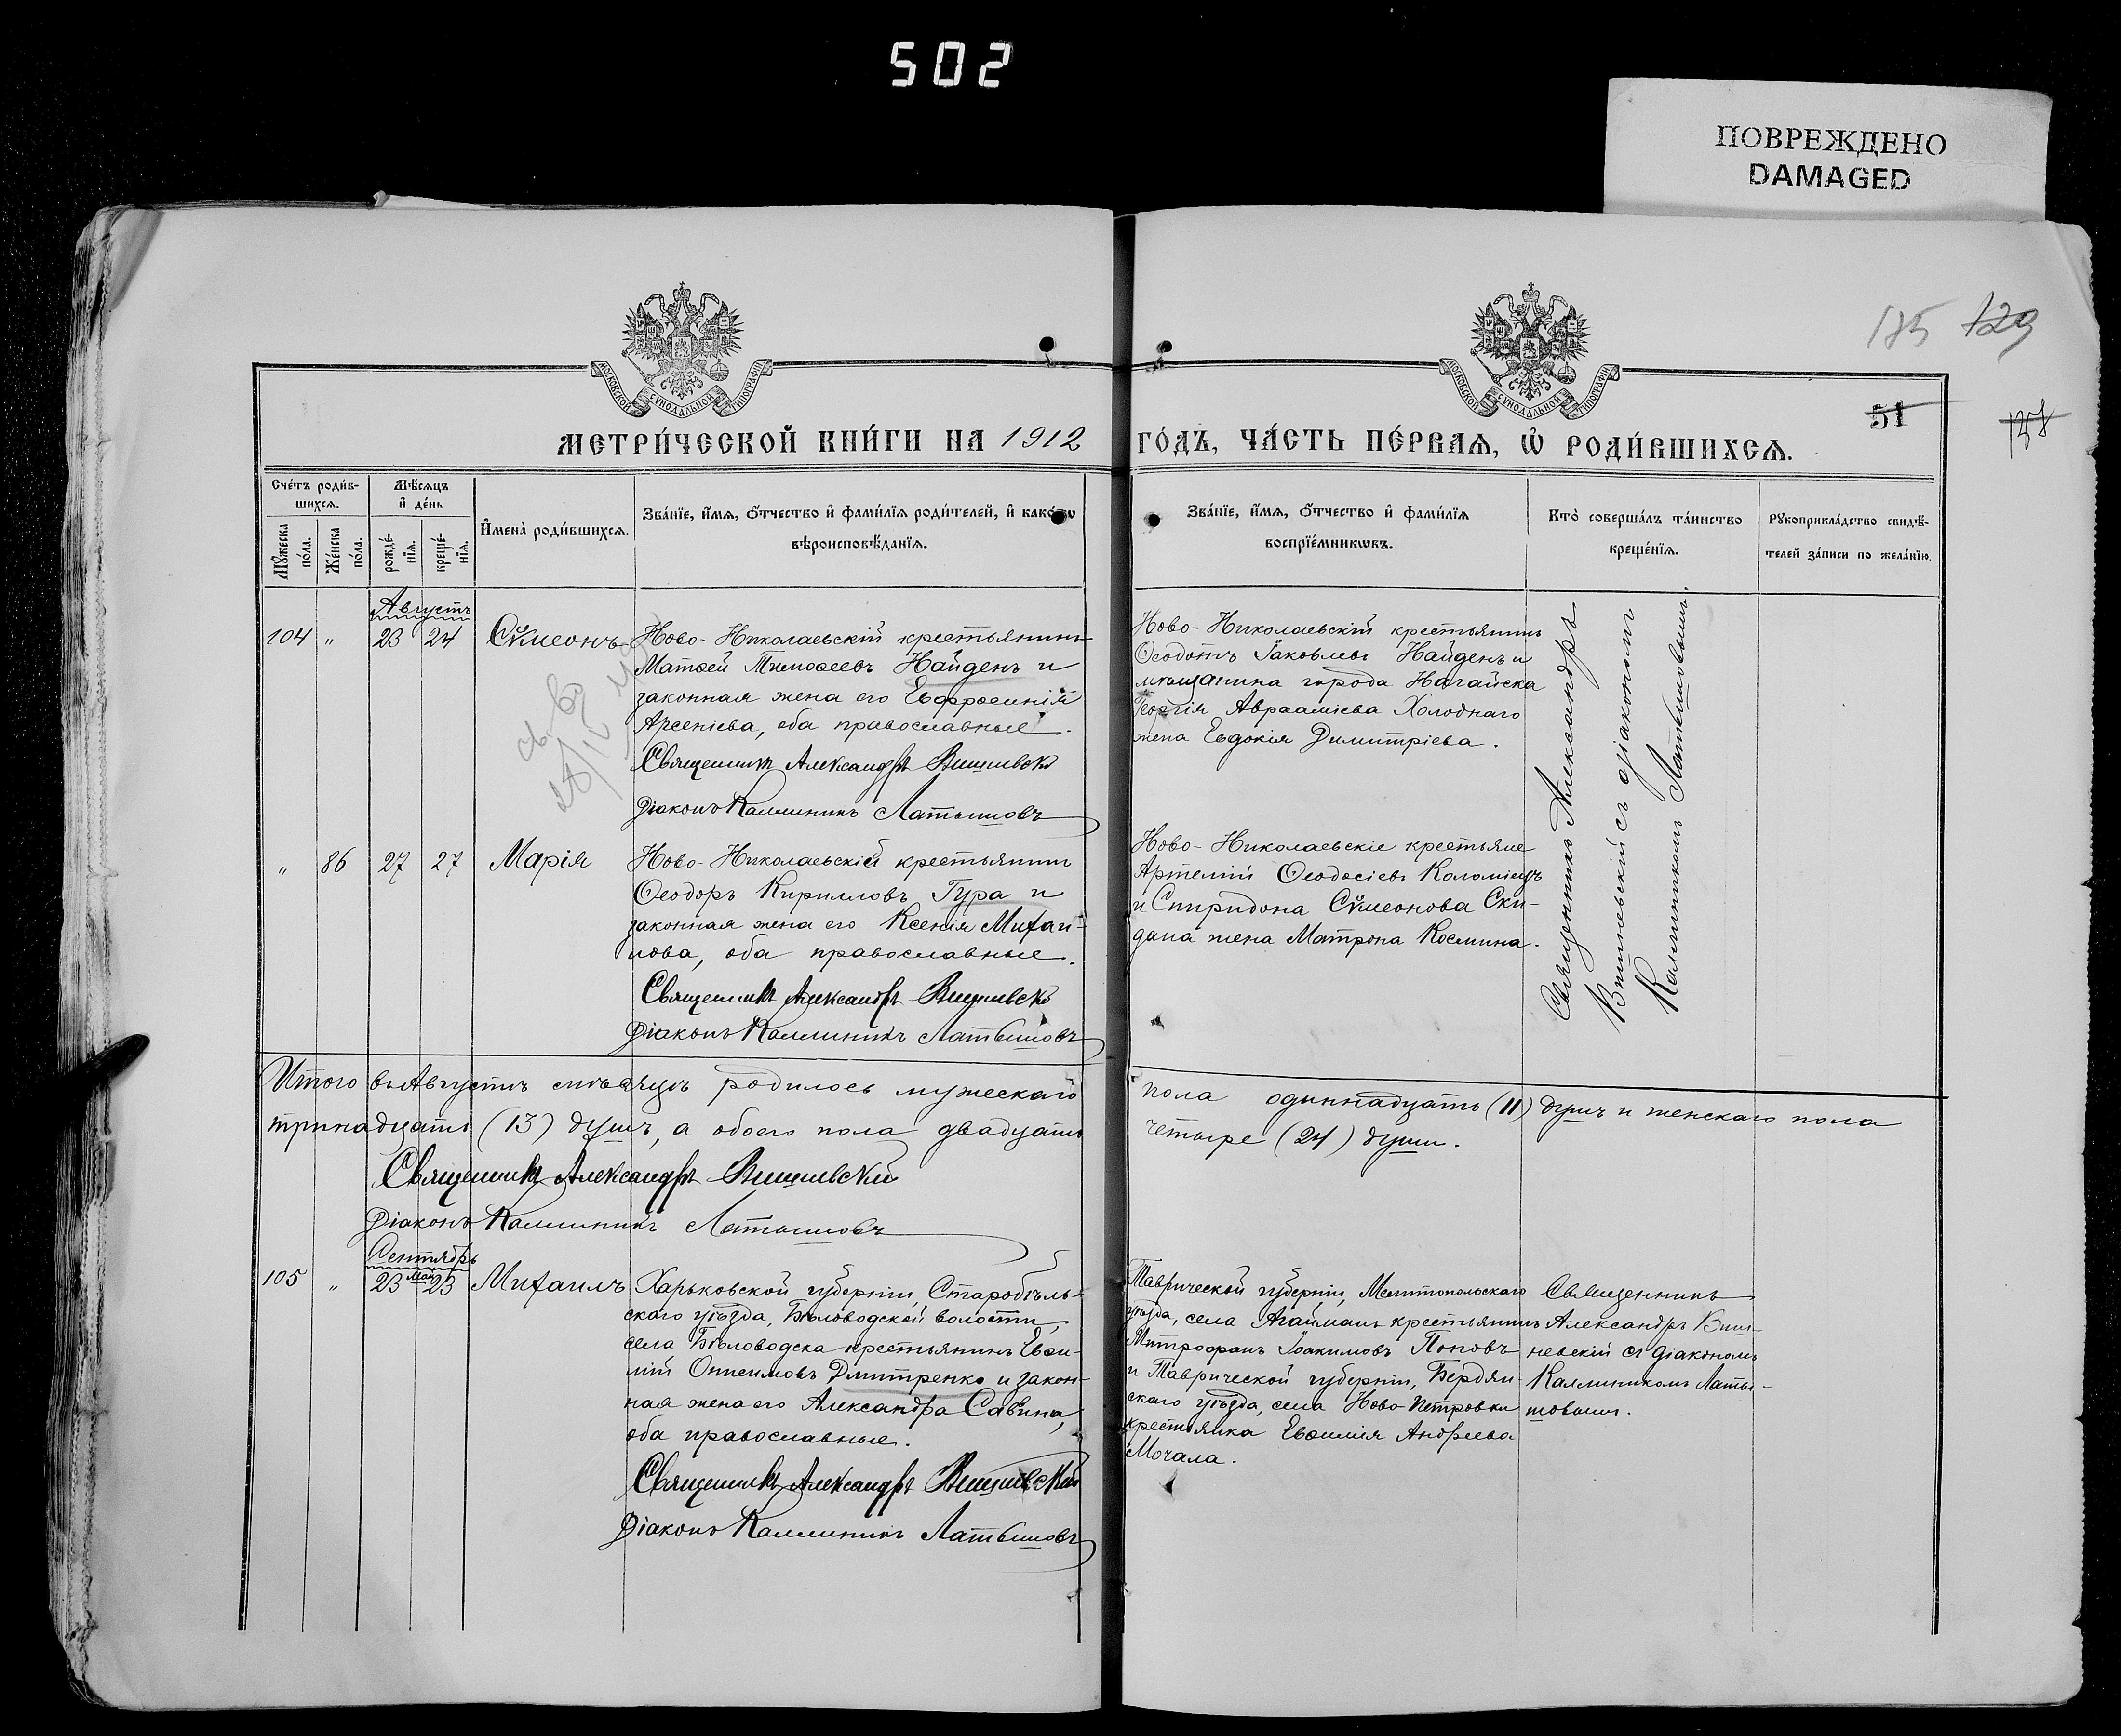 502
ПОВРЕЖДЕНО
DAMAGED
185 129
51
МЕТРИ́ЧЕСКОЙ КНИ́ГИ НА 1912 ГО́ДЪ, ЧА́СТЬ ПЕ́РВАЯ, Ѡ РОДИ́ВШИХСЯ.
Сче́тъ роди́в-
шихся.
Му́жеска по́ла.
Же́нска по́ла.
Мѣ́сяцъ
и де́нь
рожде́-
нїя.
креще́-
нїя.
Имена̀ роди́вшихся.
Зва́нїе, и́мя, о́тчество и фами́лїя роди́телей, и како́гѡ
вѣроисповѣ́данїя.
Зва́нїе, и́мя, о́тчество и фами́лїя
воспрїе́мникѡвъ.
Кто̀ соверша́лъ та́инство
креще́нїя.
Рукоприкла́дство свидѣ́-
телей за́писи по жела́нїю.
Августъ
104 " 23 24 Сѷмеонъ
Ново-Николаевскій крестьянинъ
Матѳей Тимоѳеевъ Найденъ и
законная жена его Евфросинія
Арсеніева, оба православные.
Священникъ Александръ Вишневскій
Діаконъ Каллиникъ Латышовъ
Ново-Николаевскій крестьянинъ
Ѳеодотъ Іаковлевъ Найденъ и
мѣщанина города Нагайска
Георгія Авраамiева Холоднаго
жена Евдокія Димитріева.
Священникъ Александръ
Вишневскій съ діакономъ
Каллиникомъ Латышовымъ.
" 86 27 27 Марія
Ново-Николаевскій крестьянинъ
Ѳеодоръ Кирилловъ Гура и
законная жена его Ксенія Михаи-
лова, оба православные.
Священникъ Александръ Вишневскій
Діаконъ Каллиникъ Латышовъ
Ново-Николаевскіе крестьяне
Артемій Ѳеодосіевъ Коломіецъ
и Спиридона Сѷмеонова Ски-
дана жена Матрона Космина.
Итого въ Августѣ мѣсяцѣ родилось мужескаго пола одиннадцать (11) душъ и женскаго пола
тринадцать (13) душъ, а обоего пола двадцать четыре (24) души.
Священникъ Александръ Вишневскій
Діаконъ Каллиникъ Латышовъ
Сентябрь
105 " 23 Мая 23 Михаилъ
Харьковской губерніи, Старобѣль-
скаго уѣзда, Бѣловодской волости,
села Бѣловодска крестьянинъ Евѳи-
мій Онисимовъ Дмитренко и закон-
ная жена его Александра Савина,
оба православные.
Священникъ Александръ Вишневскій
Діаконъ Каллиникъ Латышовъ
Таврической губерніи, Мелитопольскаго
уѣзда, села Агайманъ крестьянинъ
Митрофанъ Іоакимовъ Поповъ
и Таврической губерніи, Бердян-
скаго уѣзда, села Ново-Петровки
крестьянка Евѳимія Андреева
Мочала.
Священникъ
Александръ Виш-
невскій съ діакономъ
Каллиникомъ Латы-
шовымъ.